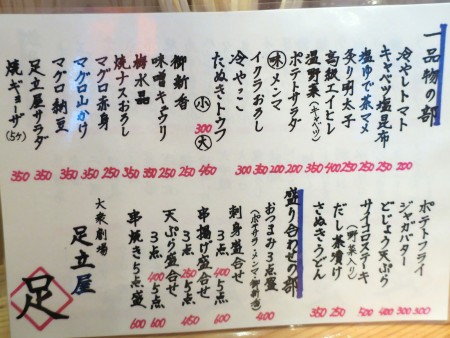 一品物の部
冷やしトマト 200
キャベツ塩昆布 250
塩ゆで茶マメ 250
炙り明太子 250
高級エイヒレ 400
温野菜(キャベツ) 350
ポテトサラダ 200
味メンマ 200
イクラおろし 350
冷やっこ 300
たぬきトウフ 小 300 大 450
御新香 250
味噌キュウリ 250
梅水晶 350
焼ナスおろし 250
マグロ赤身 350
マグロ山かけ 350
マグロ納豆 350
足立屋サラダ 350
焼ギョーザ(5ケ) 350
ポテトフライ 300
ジャガバター 300
どじょう天ぷら 400
サイコロステーキ(野菜入り) 500
だし茶漬け 250
さぬきうどん 350
盛り合わせの部
おつまみ3点盛 400
(ポテサラ・メンマ・御新香)
刺身盛合せ
3点 400 5点 600
串揚げ盛合せ
3点 250 5点 450
天ぷら盛合せ
3点 400 5点 600
串焼き5点盛 600
大衆劇場
足立屋
足